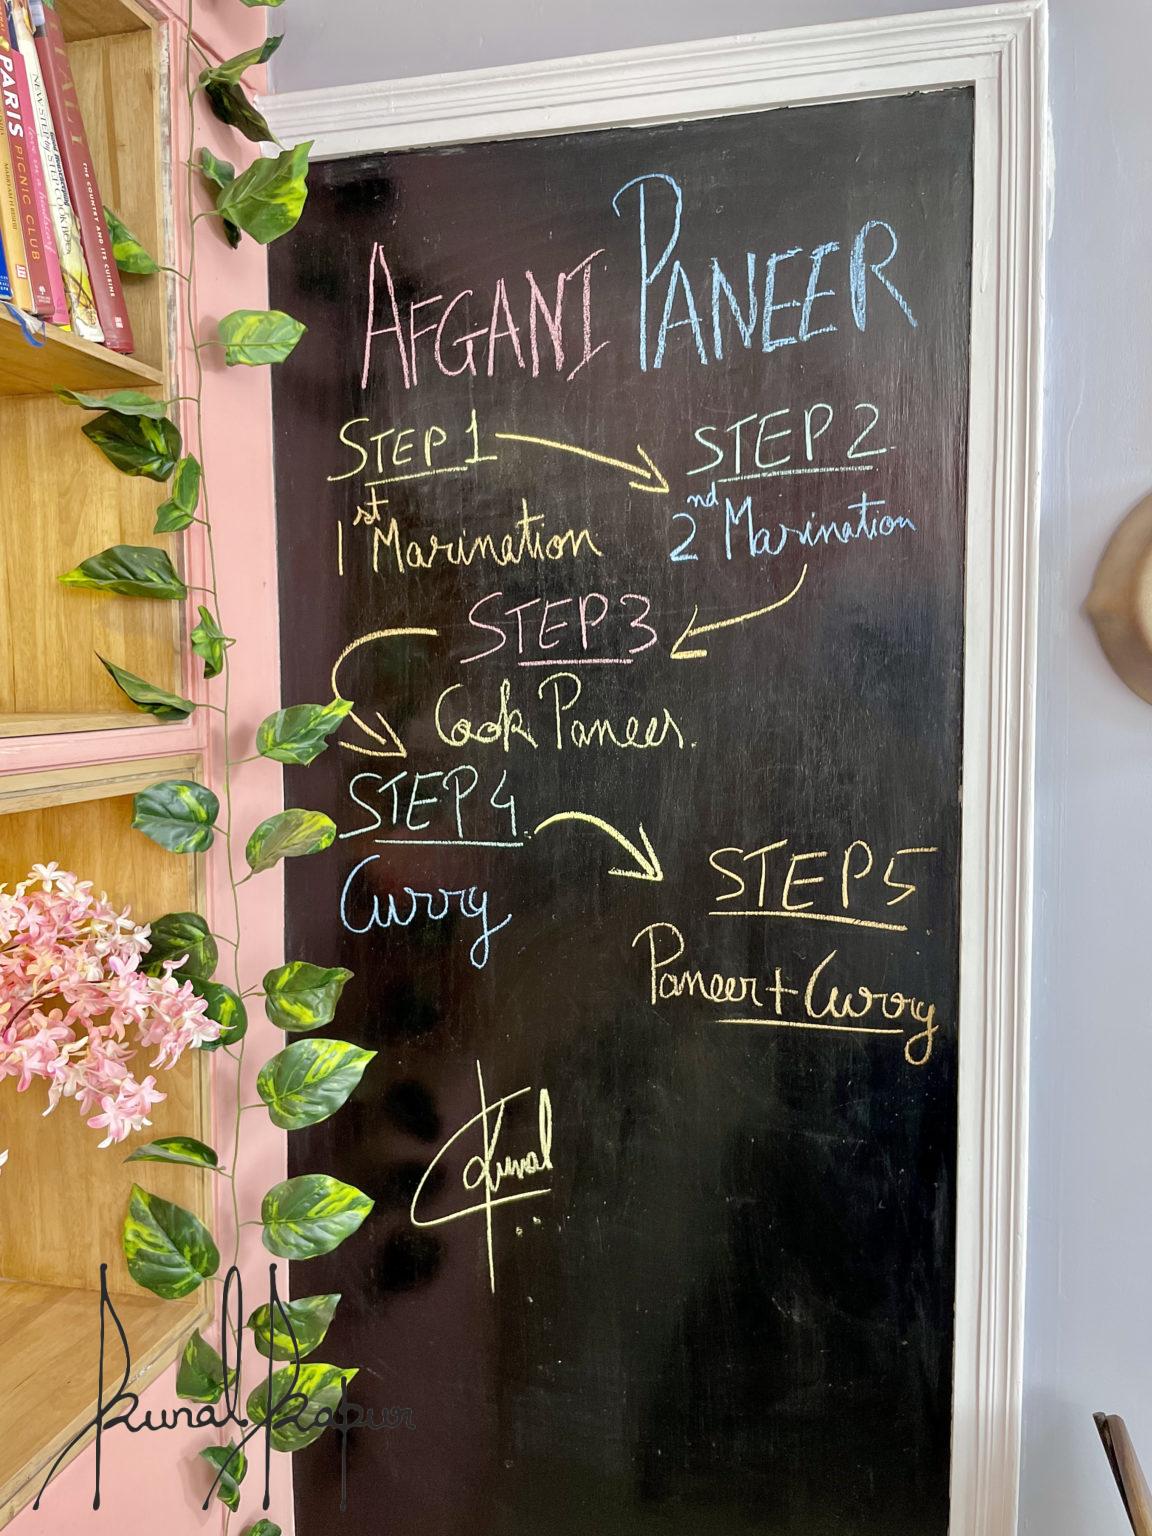 AFGANI PANEER
STEP 1
1st Marination
STEP 2
2nd Marination
STEP 3
Cook Paneer.
STEP 4
Curry
STEP 5
Paneer + Curry
Kunal
PARIS PICNIC CLUB
THE COUNTRY AND ITS CUISINE
Kunal Kapur